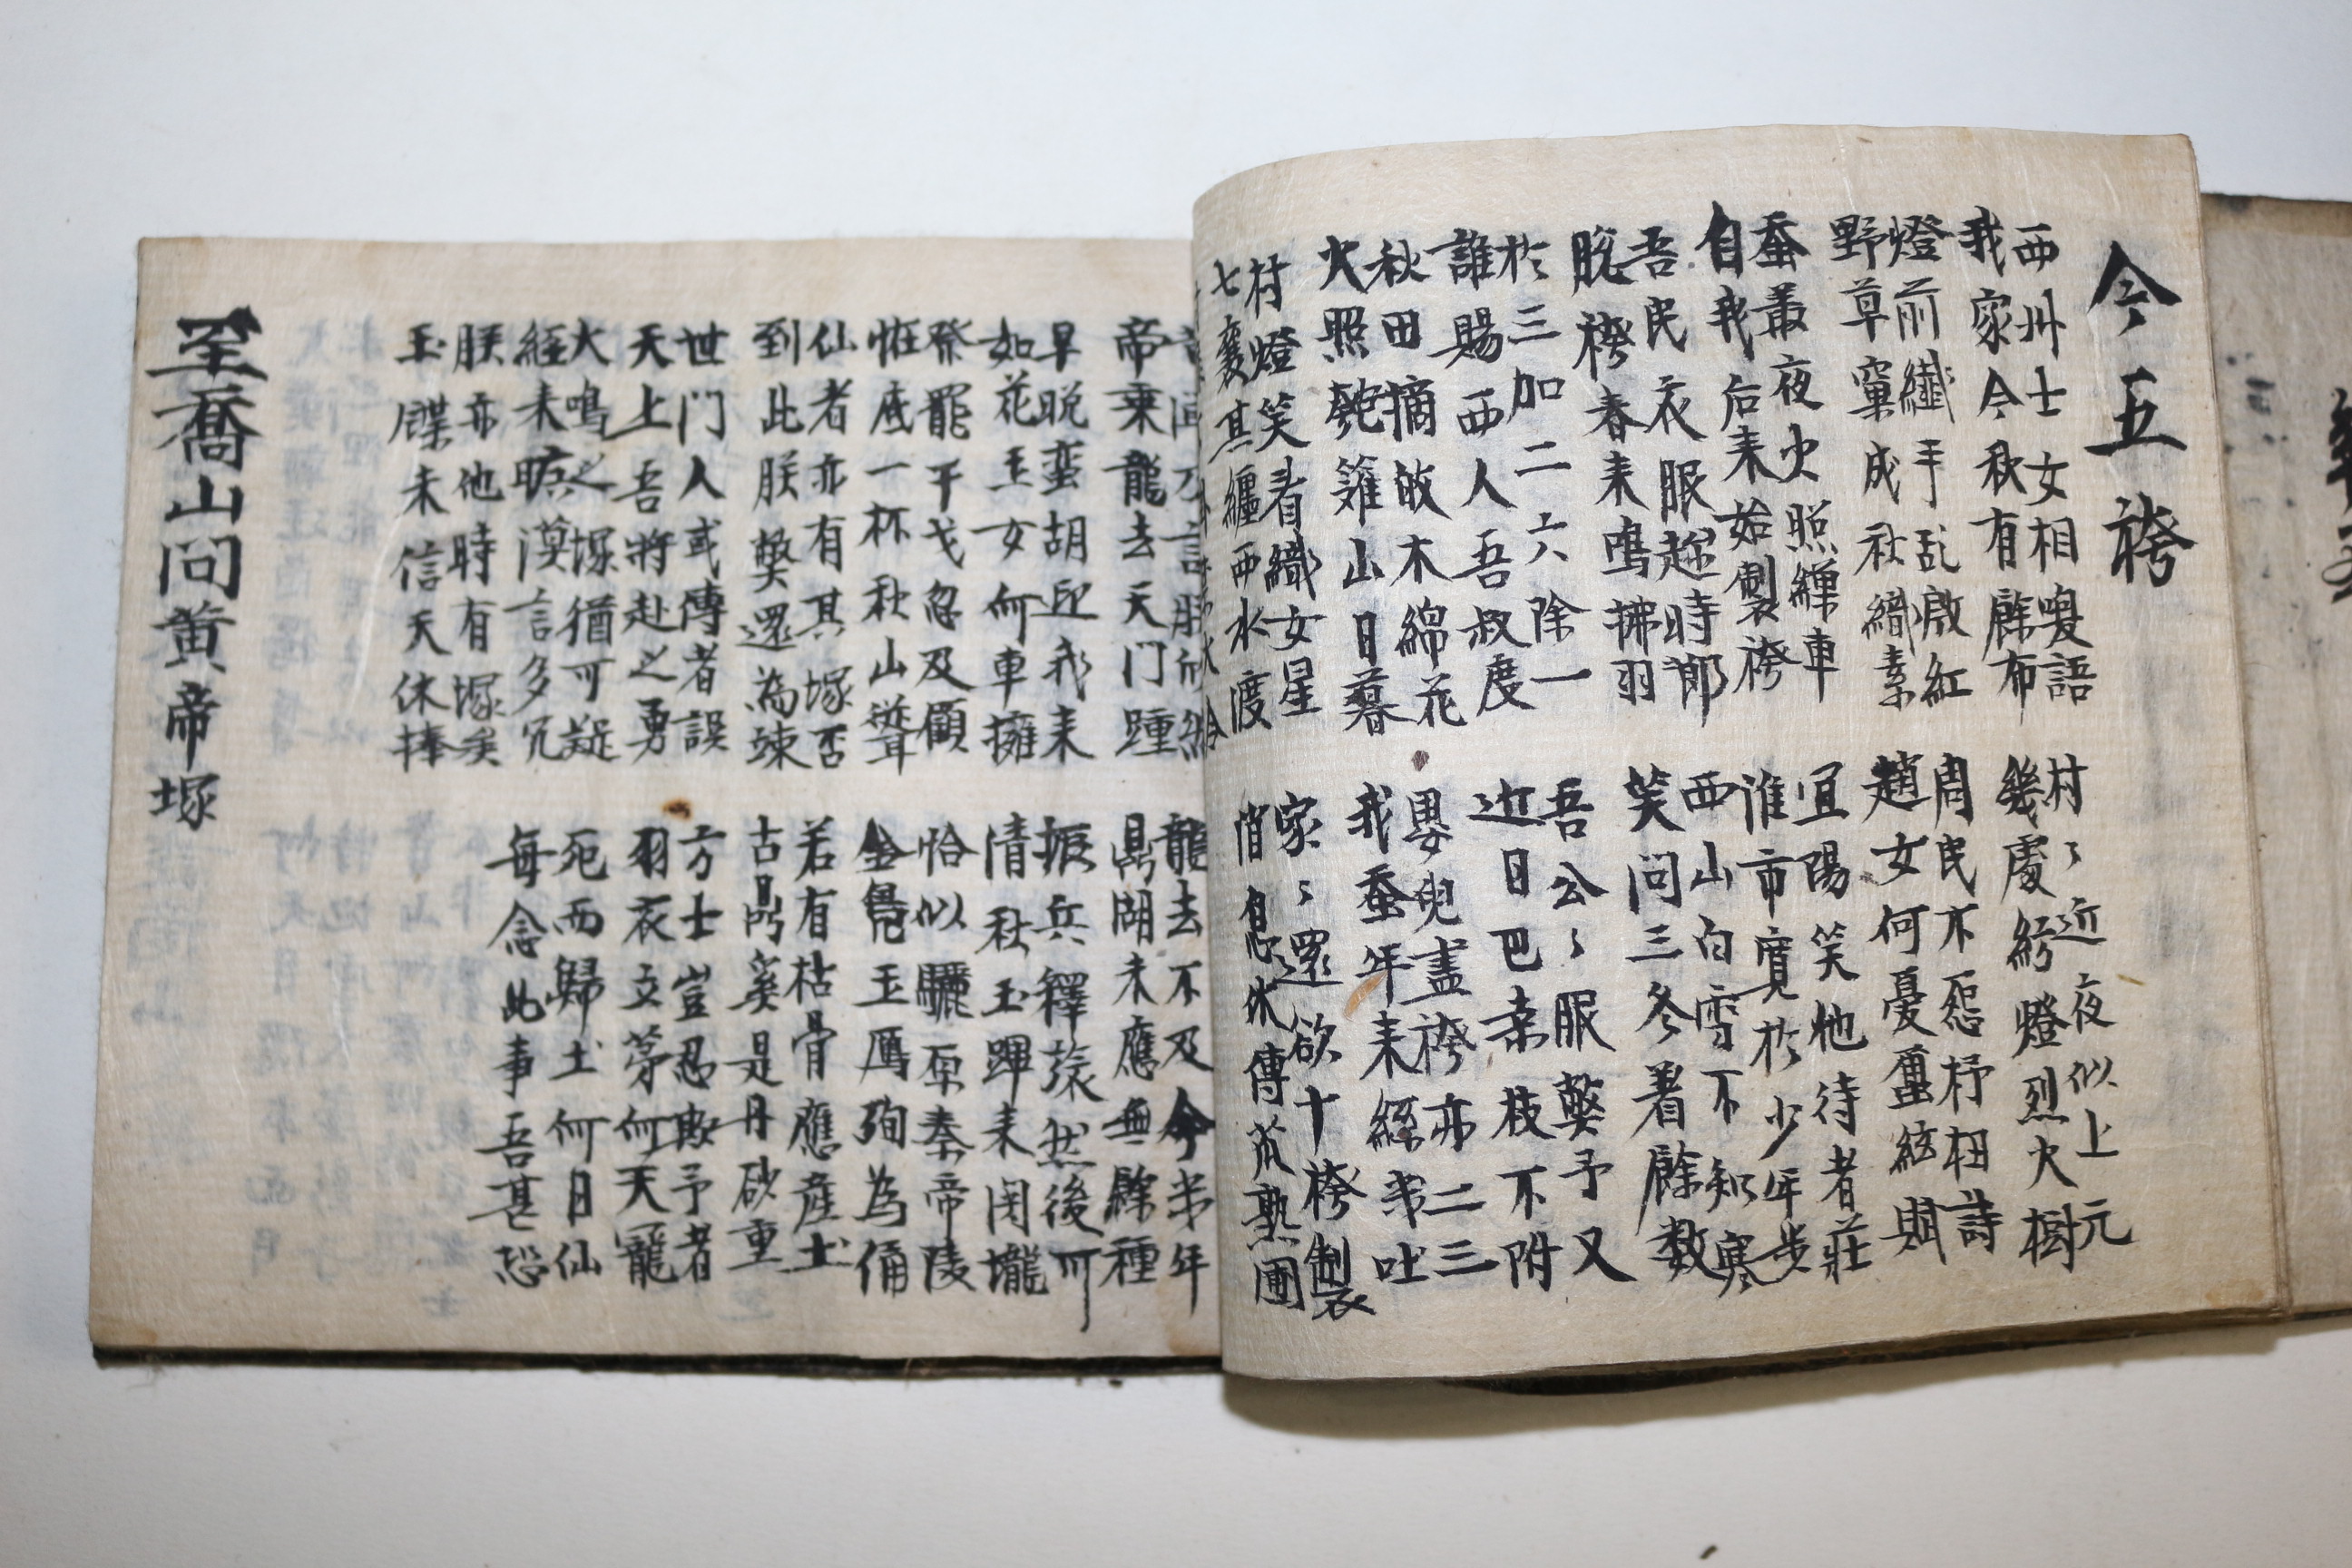 今五袴
西州士女相喚語 村〻近夜似上元
我家今秋有餘布 幾處紡燈烈火樹
燈前纖手乱啟紅 周民不怨杼柚詩
野草窠成社績素 趙女何憂絃賦
蚕叢夜火照繅車 宜陽笑他待者莊
自我后来始製袴 淮市寬於少年步
吾民衣服趁時節 西山白雪不知寒
脫袴春来鳴拂羽 笑问三冬着餘数
於三加二六除一 吾公〻服弊予又
誰賜西人吾叔度 近日巴枝不附
秋田摘故木綿花 嬰兒盡袴亦二三
火照匏籬山日暮 我蚕年来經苐吐
村燈笑看織女星 家〻還欲十袴製
七襄其纏西水渡 息休傳熟圃
龍去不及今苐年
帝乘龍去天门踵 鼎湖未應無餘種
早晚蛮胡迎我来 振兵釋然後可
如花玉女何車擁 清秋玉蹕来閱壠
祭罷干戈忽及顧 恰似驪原秦帝陵
帷底一杯秋山聳 金鳧玉馬殉為俑
仙者亦有其塚否 若有枯骨應産土
到此朕弊還為竦 古鼎奚是丹砂重
世门人或傳者誤 方士豈忍欺予者
天上吾将赴之勇 羽衣立茅何天寵
大鳴之塚猶可疑 死而歸土何日仙
經来曠漠言多冗 每念此事吾甚恐
朕亦他時有塚矣
玉牒未信天休捧
至喬山问黃帝塚